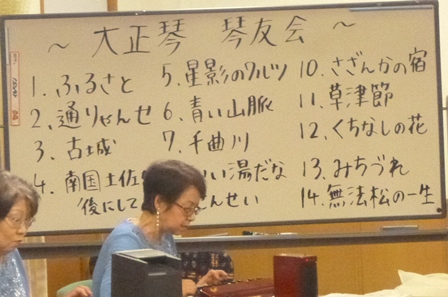 ～ 大正琴 琴友会 ～
1. ふるさと
2. 通りゃんせ
3. 古城
4. 南国土佐
後にして
5. 星影のワルツ
6. 青い山脈
7. 千曲川
い湯だな
せい
10. さざんかの宿
11. 草津節
12. くちなしの花
13. みちづれ
14. 無法松の一生